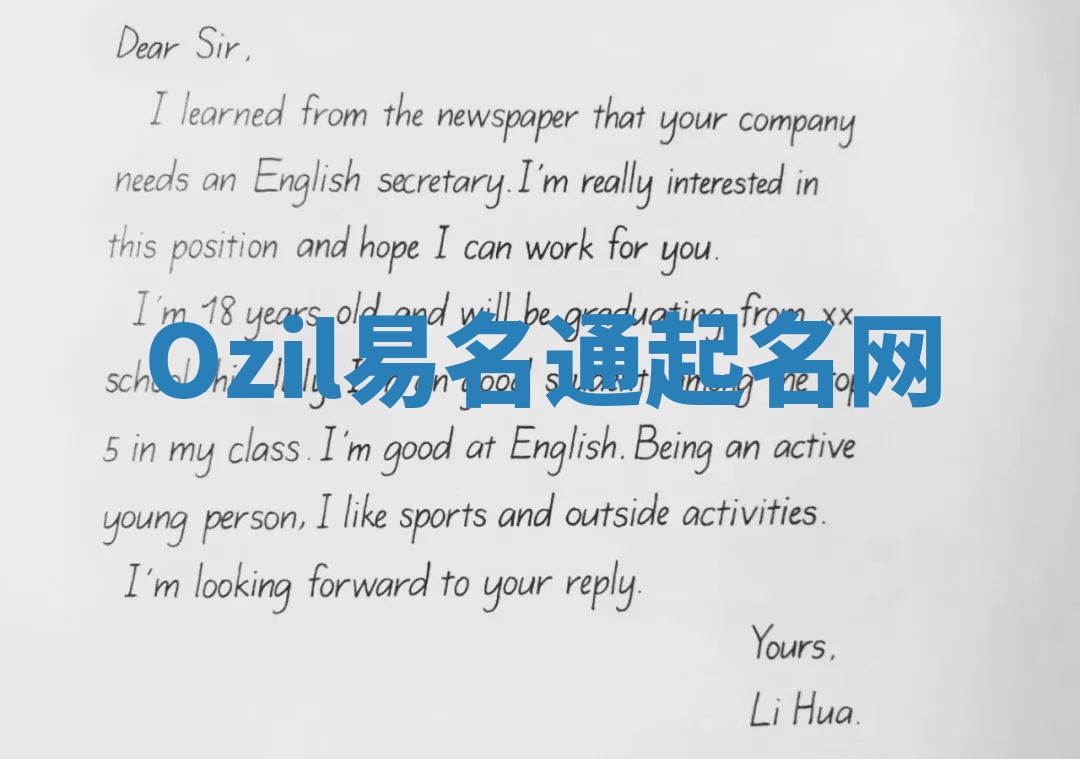 Dear Sir,
I learned from the newspaper that your company
needs an English secretary. I'm really interested in
this position and hope I can work for you.
I'm 18 years old and will be graduating from xx
Ozil易名通起名网
school this July. I'm an good student, among the top
5 in my class. I'm good at English. Being an active
young person, I like sports and outside activities.
I'm looking forward to your reply.
Yours,
Li Hua.